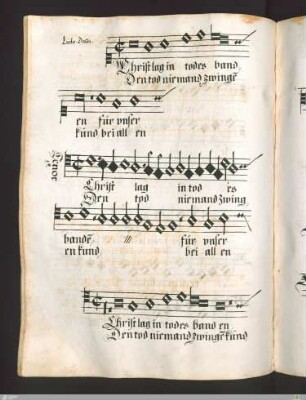 Christ lag in todes band
Den tod niemand zwingē
en für vnser
kund bei all en
Tenor
Christ lag in tod es
Den tod niemand zwing
bandē iij für vnser
en kund bei all en
Christ lag in todes band en
Den tod niemand zwingē kund